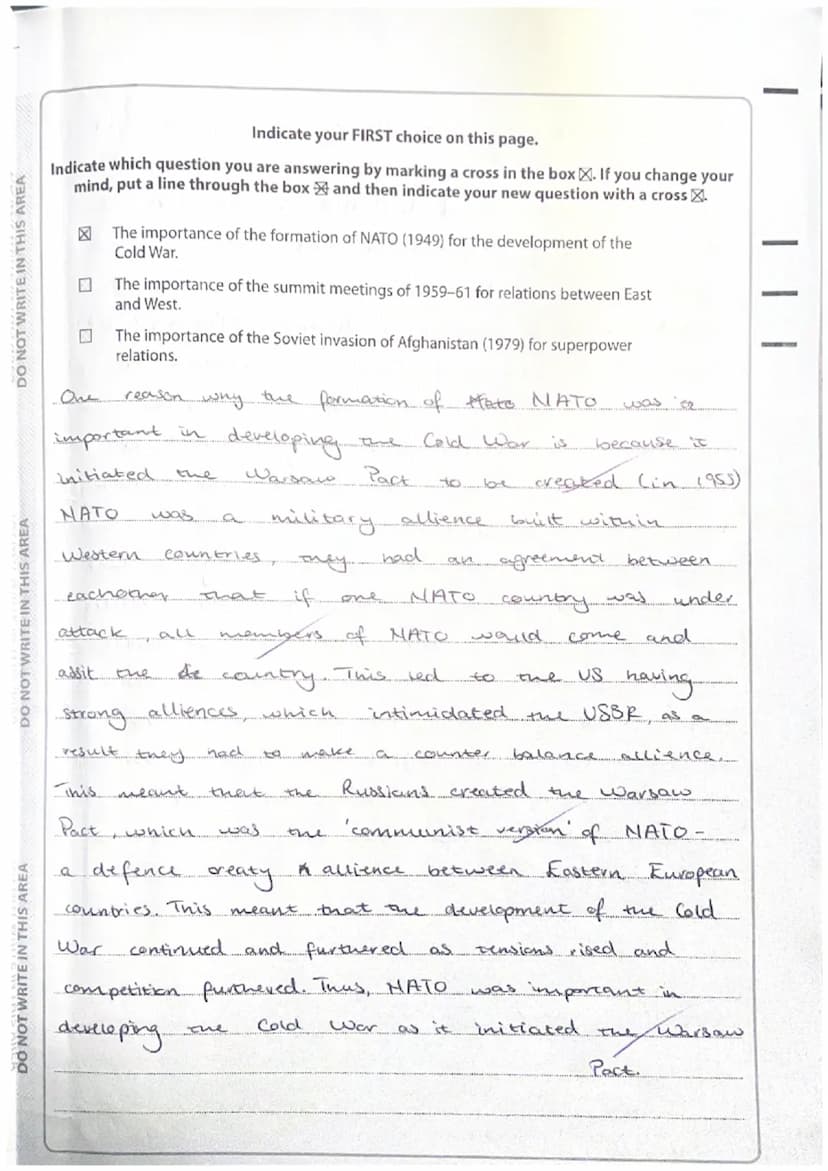 Indicate your FIRST choice on this page.
Indicate which question you are answering by marking a cross in the box ☒. If you change your
mind, put a line through the box and then indicate your new question with a cross ☒.
☒ The importance of the formation of NATO (1949) for the development of the
Cold War.
☐ The importance of the summit meetings of 1959–61 for relations between East
and West.
☐ The importance of the Soviet invasion of Afghanistan (1979) for superpower
relations.
One reason why the formation of NATO was
important in developing the Cold War is because it
initiated the Warsaw Pact to be created (in 1955)
NATO was a military allience built within
Western countries, they had an agreement between
eachother that if one NATO country was under
attack, all members of NATO would come and
assit the country. This led to the US having
strong alliences, which intimidated the USSR, as a
result they had to make a counter balance allience.
This meant that the Russians created the Warsaw
Pact, which was the 'communist version' of NATO -
a defence treaty allience between Eastern European
countries. This meant that the development of the Cold
War continued and furthered as tensions rised and
competition furthered. Thus, NATO was important in
developing the Cold War as it initiated the Warsaw
Pact.
DO NOT WRITE IN THIS AREA
DO NOT WRITE IN THIS AREA
DO NOT WRITE IN THIS AREA